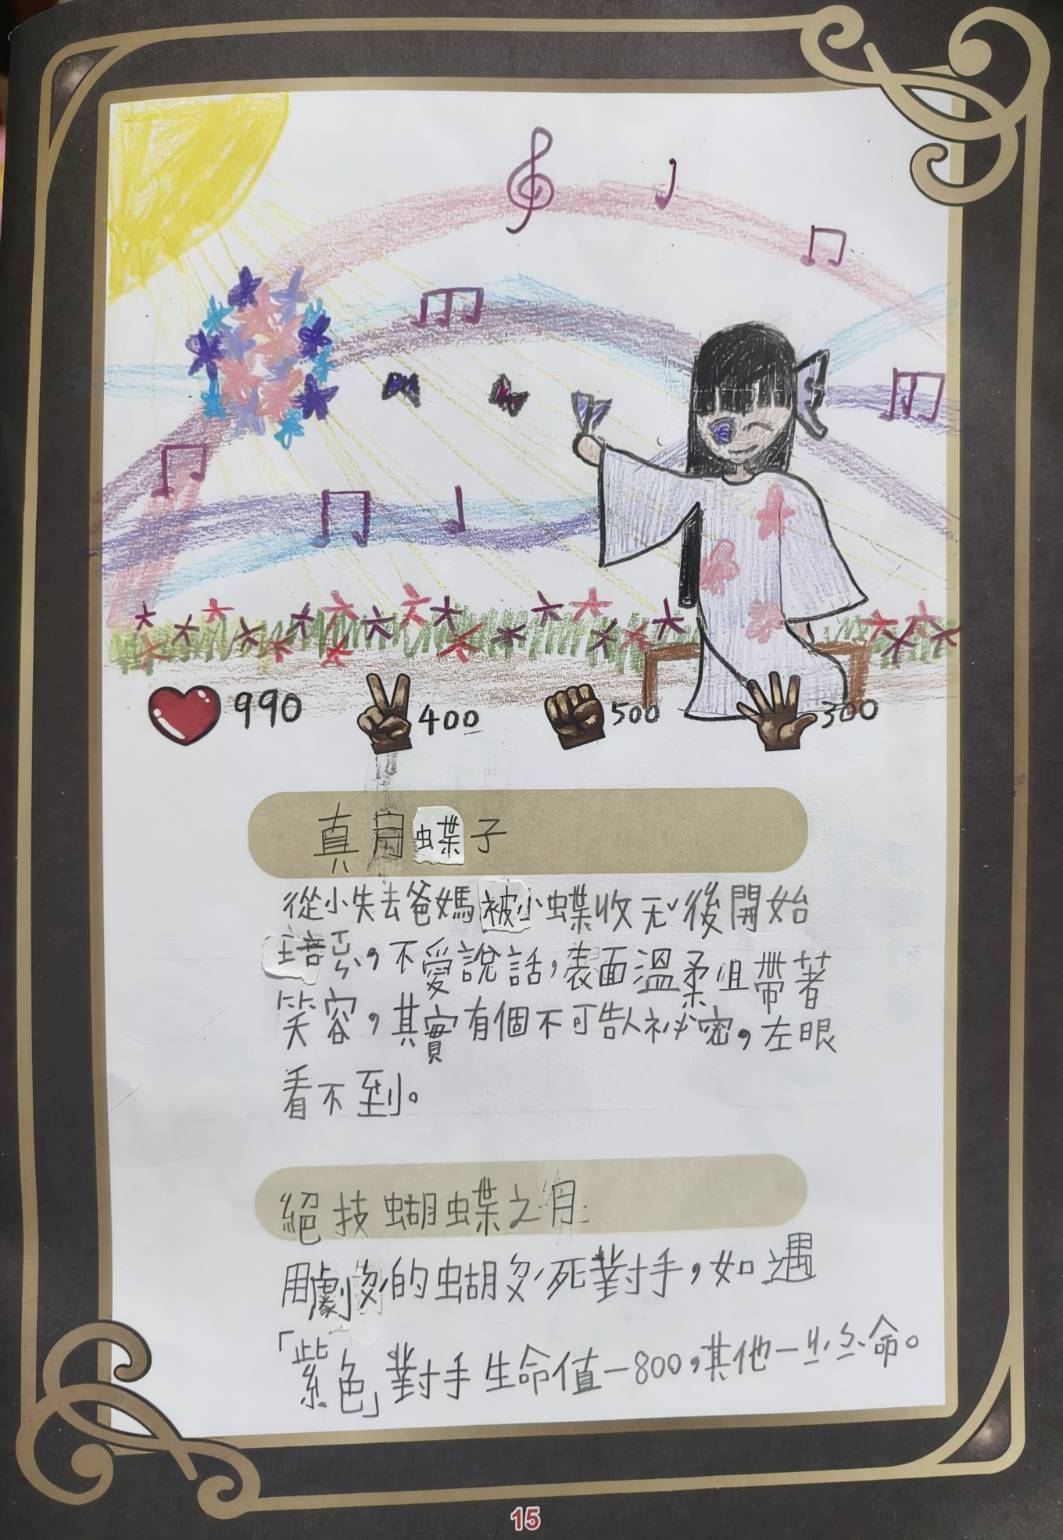 990 400 500 300
真月蝶子
從小失去爸媽被小蝶收 後開始
培ㄧㄤˇ,不愛說話,表面溫柔且帶著
笑容,其實有個不可告人祕密,左眼
看不到。
絕技蝴蝶之月
用劇ㄉㄨˊ的蝴ㄉㄧㄝˊ死對手,如遇
「紫色」對手生命值-800,其他一ㄐㄧˊ 命。
15